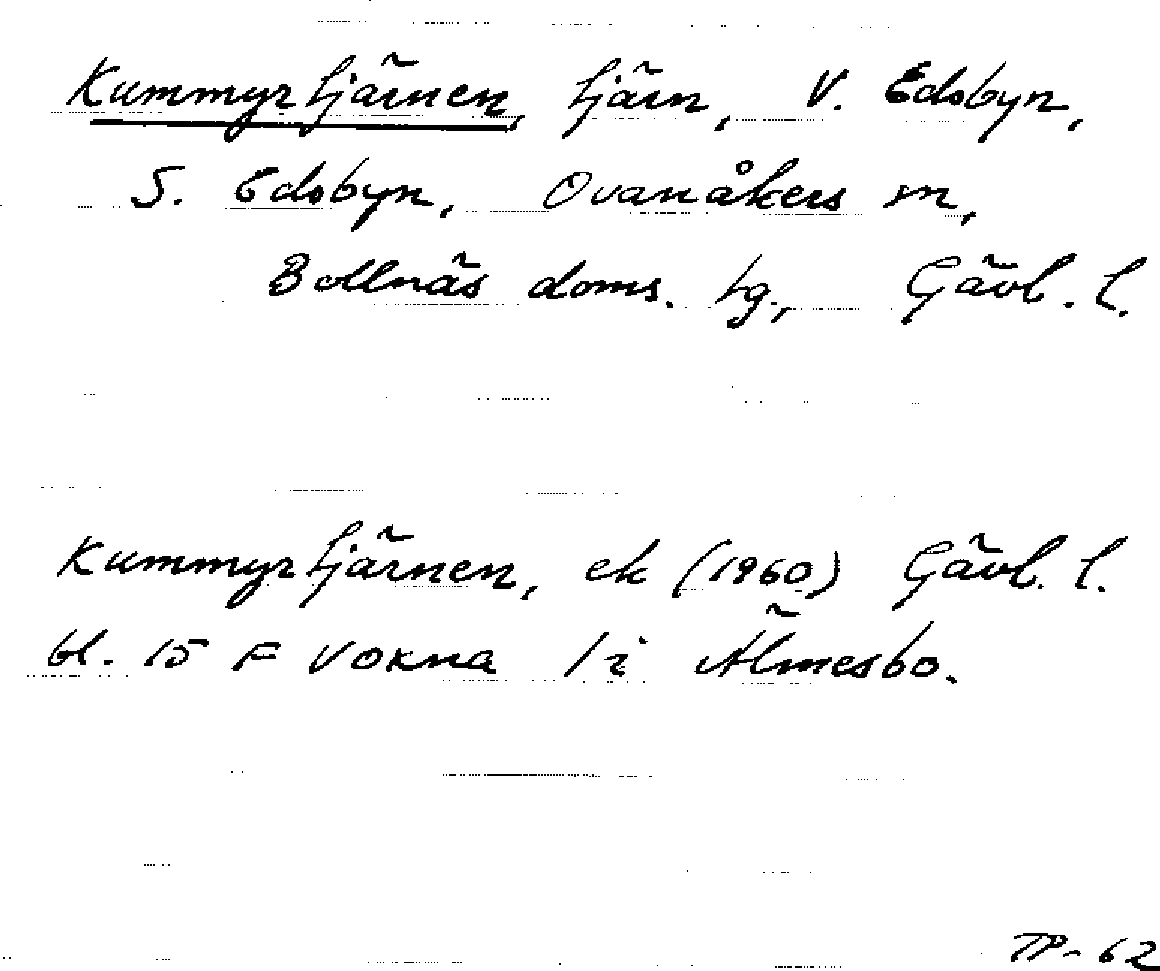 Kummyrtjärnen, tjärn, V. Edsbyn,
S. Edsbyn, Ovanåkers sn,
Bollnäs doms. tg., Gävl. l.
Kummyrtjärnen, ek (1960) Gävl. l.
bl. 15 F VOXNA 1 i Älmesbo.
TP-62